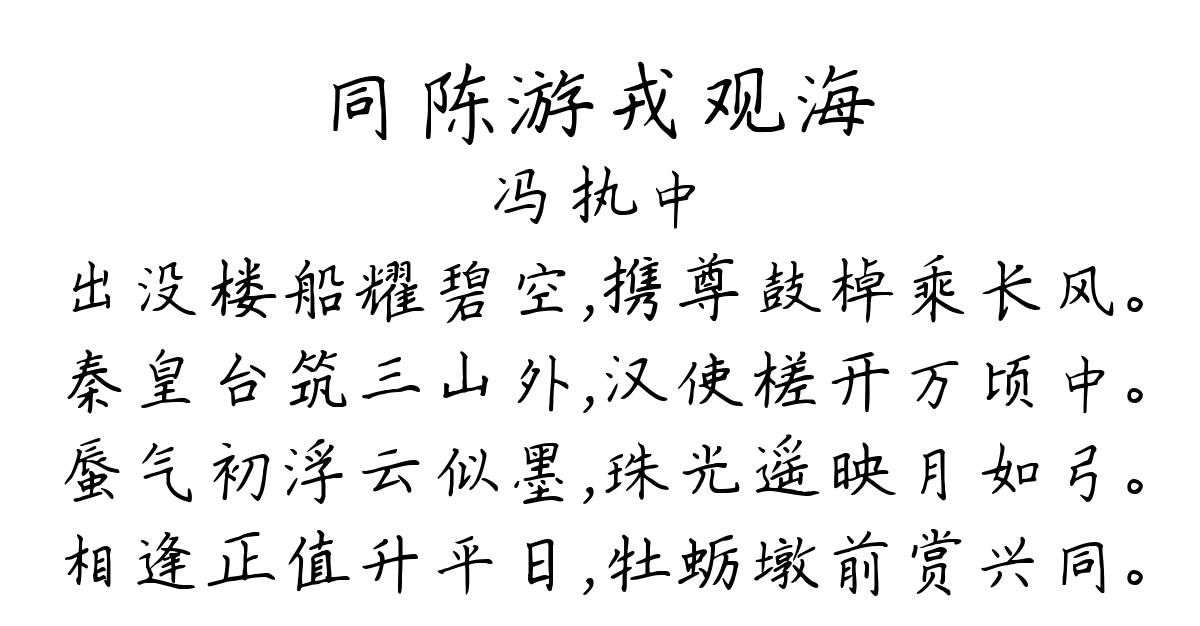 同陈游戎观海
冯执中
出没楼船耀碧空,携尊鼓棹乘长风。
秦皇台筑三山外,汉使槎开万顷中。
蜃气初浮云似墨,珠光遥映月如弓。
相逢正值升平日,牡蛎墩前赏兴同。